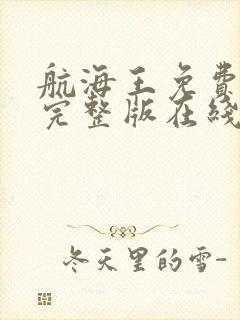 航海王免費
完整版在綫
冬天里的雪-